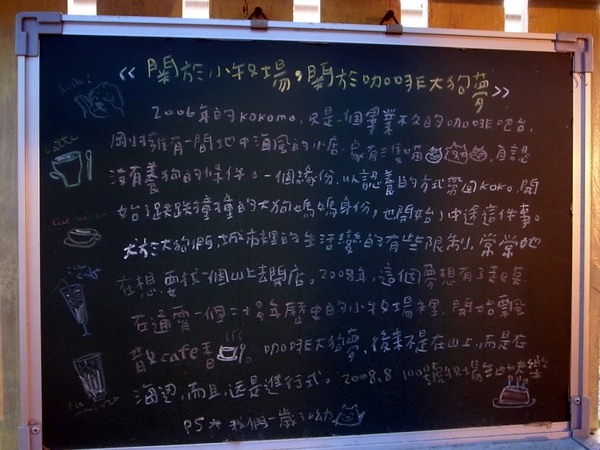 《關於小牧場，關於咖啡大狗夢》
2006年的kokomo，只是一個畢業不久的咖啡吧台，
剛擁有一間地中海風的小店，家有三隻貓，自認
沒有養狗的條件。一個緣份，以認養的方式帶回koko，開
始了跌跌撞撞的大狗媽媽身份，也開始了中途這件事。
大狗們，城市裡的生活變的有些限制，常常地
在想，要找個山上去開店。2008年，這個夢想有了
在通霄一個二十多年歷史的小牧場裡，開始飄
cafe香。咖啡大狗夢，後來不是在山上，而是在
海邊，而且，還是進行式。2008.8
PS * 我們一歲了呦
Latte